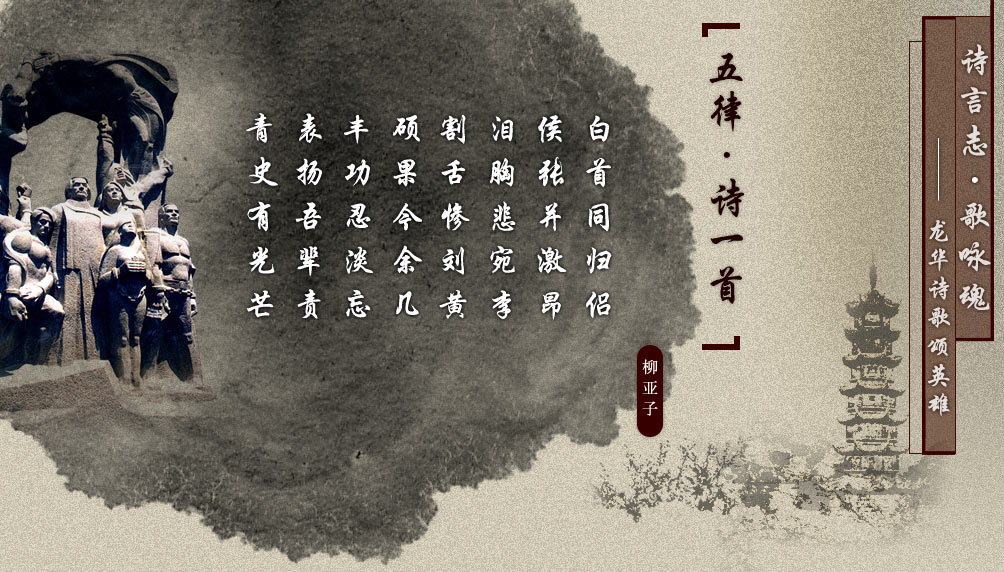 诗言志·歌咏魂
——龙华诗歌颂英雄
五律·诗一首
柳亚子
白首同归侣
侯张并激昂
泪胸悲宛李
割舌惨刘黄
硕果今余几
丰功忍淡忘
表扬吾辈责
青史有光芒